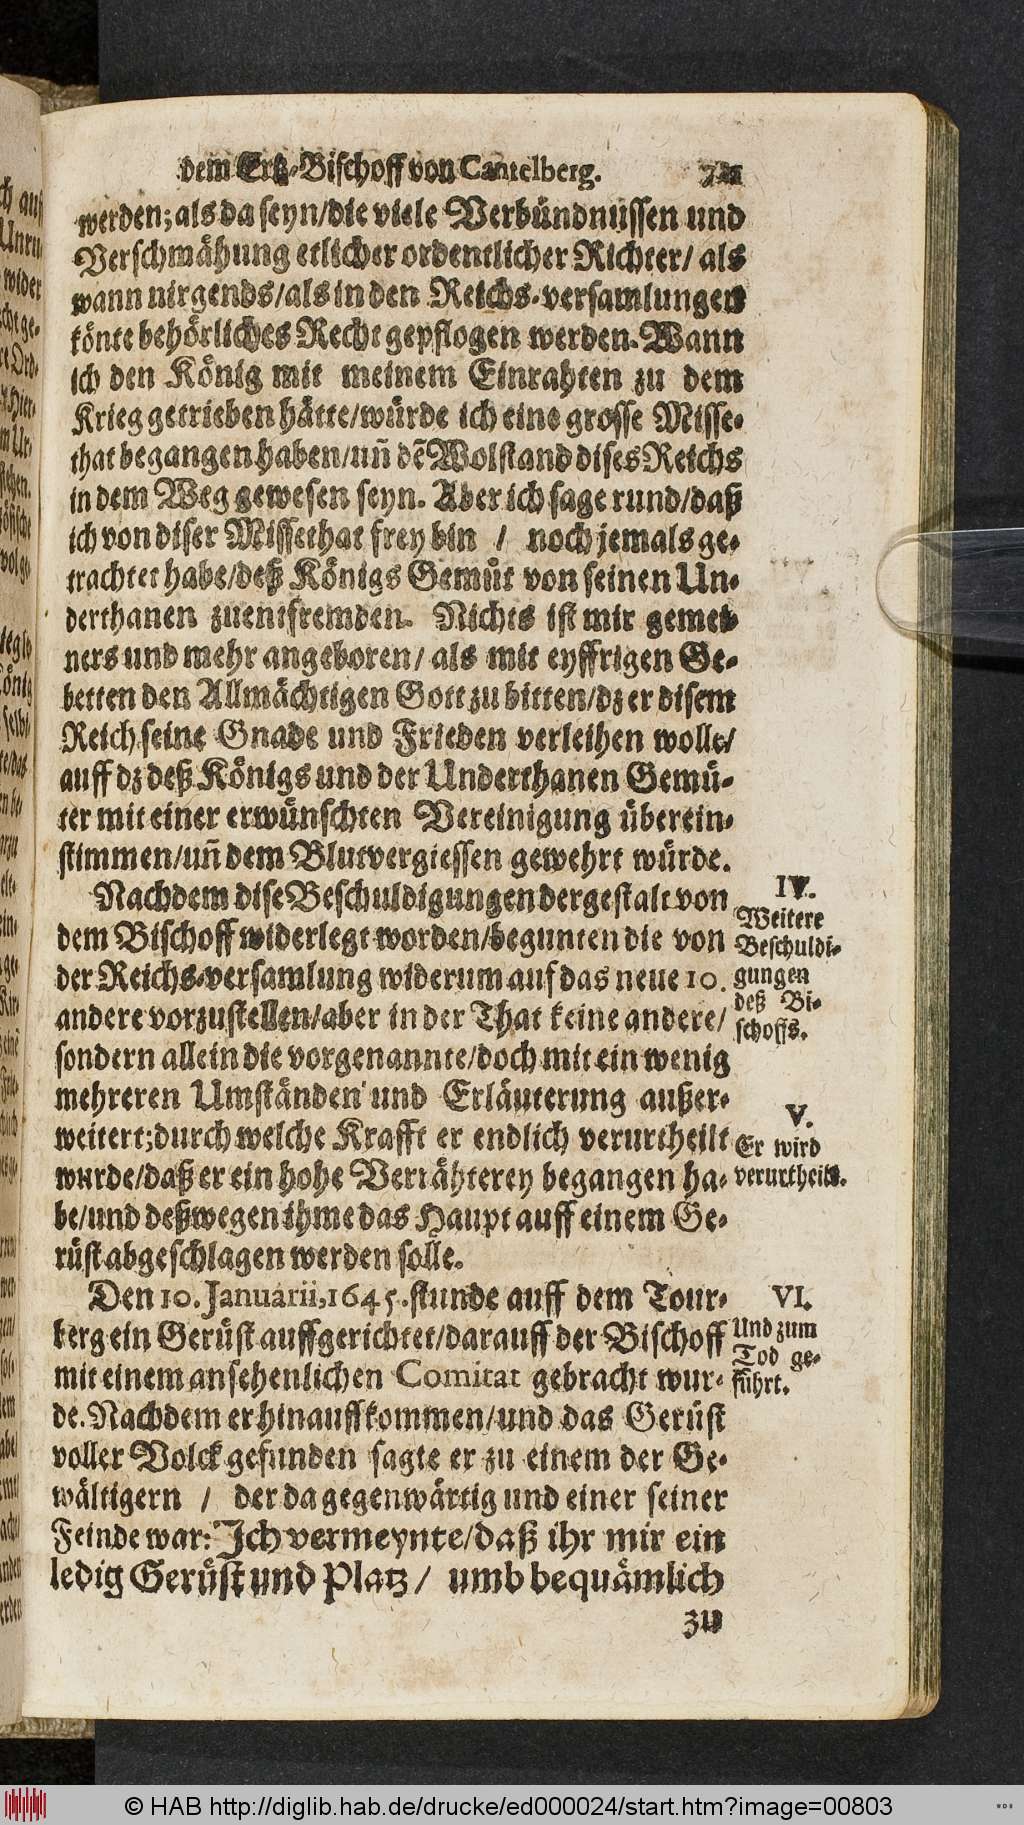 dem Ertz-Bischoff von Cantelberg.
werden; als da seyn/die viele Verbündnussen und
Verschmähung etlicher ordentlicher Richter/ als
wann nirgends/als in den Reichs-versamlungen
könte behörliches Recht gepflogen werden. Wann
ich den König mit meinem Einrahten zu dem
Krieg getrieben hätte/würde ich eine grosse Misse-
that begangen haben/uñ dẽ Wolstand dises Reichs
in dem Weg gewesen seyn. Aber ich sage rund/daß
ich von diser Missethat frey bin / noch jemals ge-
trachtet habe/deß Königs Gemüt von seinen Un-
derthanen zuentfremden. Nichts ist mir gemei-
ners und mehr angeboren/ als mit eyffrigen Ge-
betten den Allmächtigen Gott zu bitten/dz er disem
Reich seine Gnade und Frieden verleihen wolle/
auff dz deß Königs und der Underthanen Gemü-
ter mit einer erwünschten Vereinigung überein-
stimmen/uñ dem Blutvergiessen gewehrt würde.
Nachdem dise Beschuldigungen dergestalt von
dem Bischoff widerlegt worden/begunten die von
der Reichs-versamlung widerum auf das neue 10.
andere vorzustellen/aber in der That keine andere/
sondern allein die vorgenannte/doch mit ein wenig
mehreren Umständen und Erläuterung außer-
weitert; durch welche Krafft er endlich verurtheilt
wurde/daß er ein hohe Verrähterey begangen ha-
be/und deßwegen ihme das Haupt auff einem Ge-
rüst abgeschlagen werden solle.
Den 10. Januarii, 1645. stunde auff dem Tour-
berg ein Gerüst auffgerichtet/darauff der Bischoff
mit einem ansehenlichen Comitat gebracht wur-
de. Nachdem er hinauff kommen/und das Gerüst
voller Volck gefunden sagte er zu einem der Ge-
wältigern / der da gegenwärtig und einer seiner
Feinde war: Ich vermeynte/daß ihr mir ein
ledig Gerüst und Platz / umb bequämlich
zu
IV.
Weitere
Beschuldi-
gungen
deß Bi-
schoffs.
V.
Er wird
verurtheilt.
VI.
Und zum
Tod ge-
führt.
© HAB http://diglib.hab.de/drucke/ed000024/start.htm?image=00803